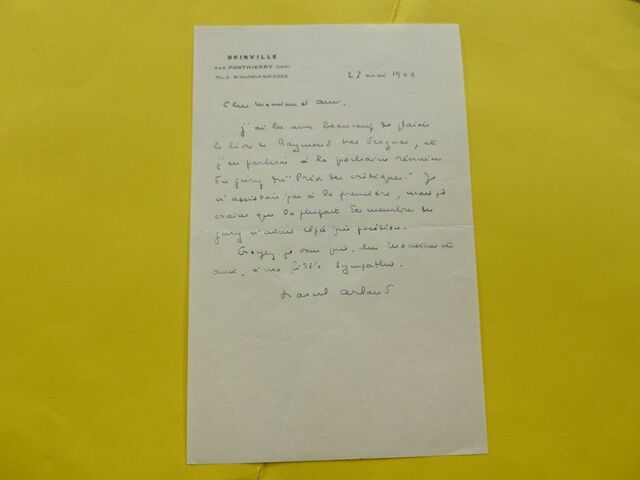 BRINVILLE
PAR PONTHIERRY (S&M)
TEL. 2. St SAUVEUR-SUR-ECOLE
27 mai 1949
Cher Monsieur et ami,
j'ai lu avec beaucoup de plaisir
le livre de Raymond Las Vergnas, et
j'en parlerai à la prochaine réunion
du jury du "Prix des critiques". Je
n'assistais pas à la première, mais je
crains que la plupart des membres du
jury n'aient déjà pris position.
Croyez, je vous prie, cher Monsieur et
ami, à ma fidèle sympathie.
Marcel Arland